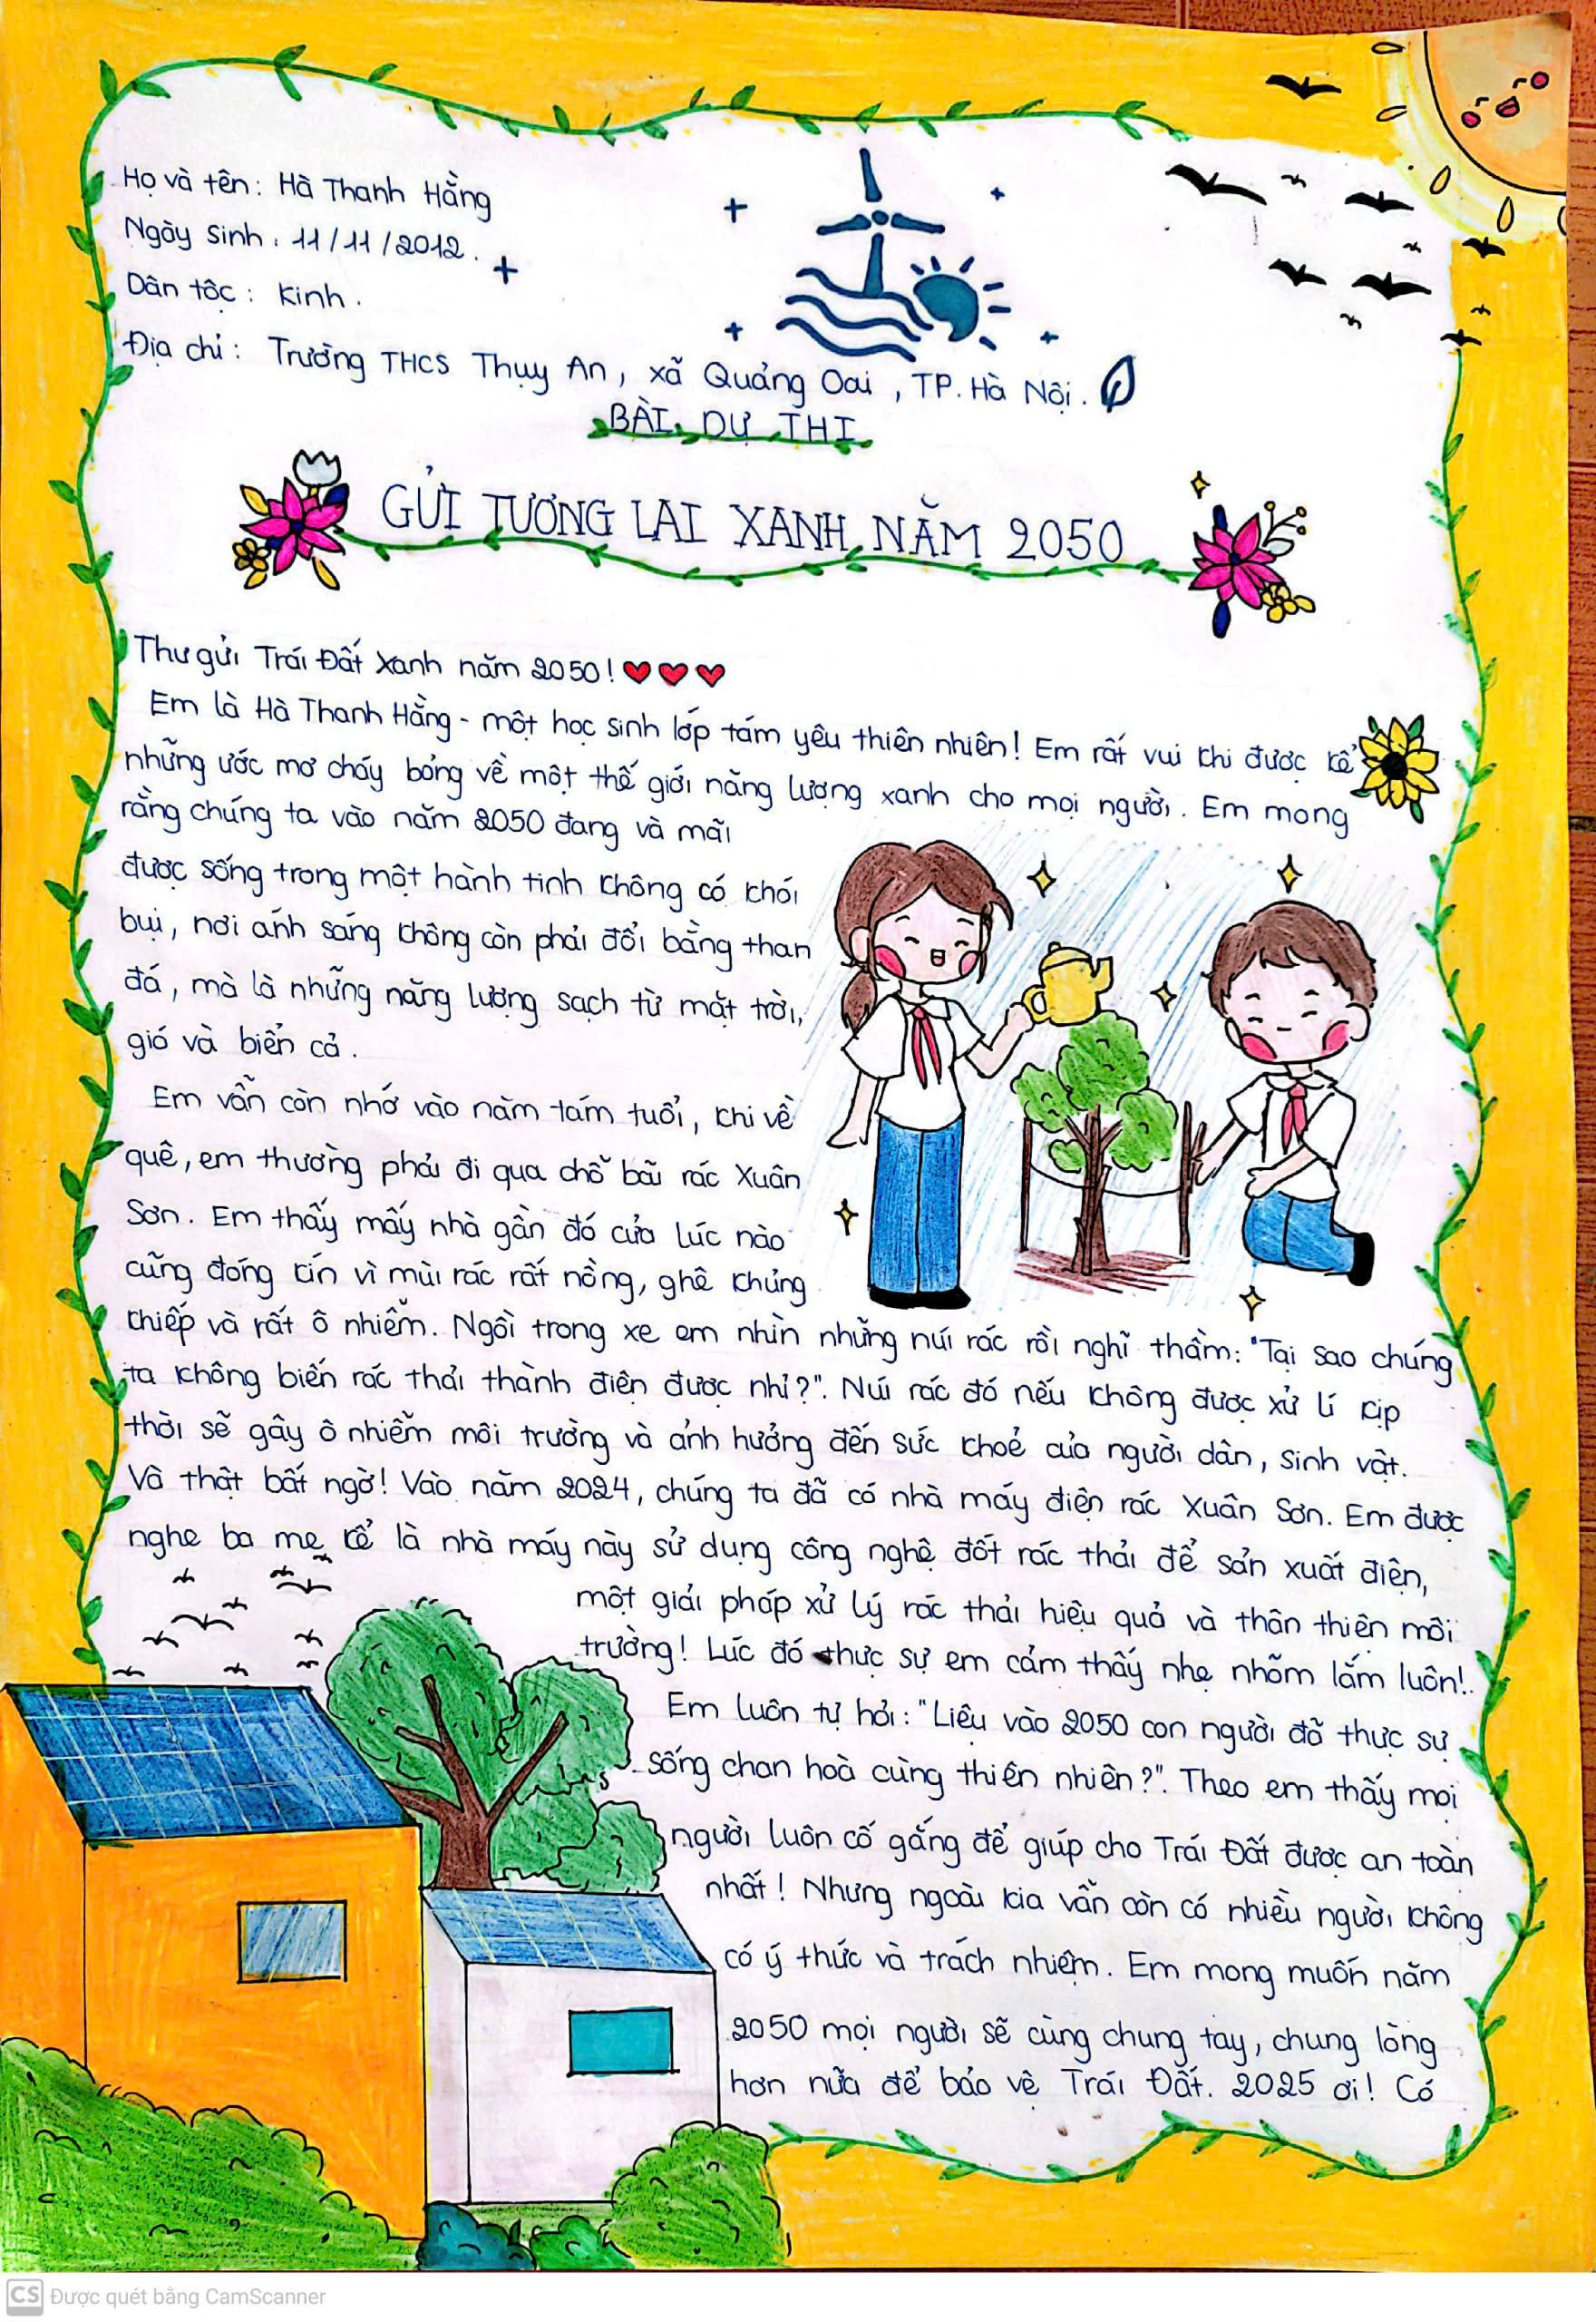 Họ và tên: Hà Thanh Hằng
Ngày sinh: 11/11/2012.
Dân tộc: Kinh.
Địa chỉ: Trường THCS Thụy An, xã Quảng Oai, TP. Hà Nội.
BÀI DỰ THI
GỬI TƯƠNG LAI XANH NĂM 2050
Thư gửi Trái Đất xanh năm 2050!
Em là Hà Thanh Hằng - một học sinh lớp tám yêu thiên nhiên! Em rất vui khi được kể
những ước mơ cháy bỏng về một thế giới năng lượng xanh cho mọi người. Em mong
rằng chúng ta vào năm 2050 đang và mãi
được sống trong một hành tinh không có khói
bụi, nơi ánh sáng không còn phải đổi bằng than
đá, mà là những năng lượng sạch từ mặt trời,
gió và biển cả.
Em vẫn còn nhớ vào năm tám tuổi, khi về
quê, em thường phải đi qua chỗ bãi rác Xuân
Sơn. Em thấy mấy nhà gần đó cửa lúc nào
cũng đóng kín vì mùi rác rất nồng, ghê khủng
khiếp và rất ô nhiễm. Ngồi trong xe em nhìn những núi rác rồi nghĩ thầm: "Tại sao chúng
ta không biến rác thải thành điện được nhỉ?". Núi rác đó nếu không được xử lí kịp
thời sẽ gây ô nhiễm môi trường và ảnh hưởng đến sức khoẻ của người dân, sinh vật.
Và thật bất ngờ! Vào năm 2024, chúng ta đã có nhà máy điện rác Xuân Sơn. Em được
nghe ba mẹ kể là nhà máy này sử dụng công nghệ đốt rác thải để sản xuất điện,
một giải pháp xử lý rác thải hiệu quả và thân thiện môi
trường! Lúc đó thực sự em cảm thấy nhẹ nhõm lắm luôn!.
Em luôn tự hỏi: "Liệu vào 2050 con người đã thực sự
sống chan hoà cùng thiên nhiên?". Theo em thấy mọi
người luôn cố gắng để giúp cho Trái Đất được an toàn
nhất! Nhưng ngoài kia vẫn còn có nhiều người không
có ý thức và trách nhiệm. Em mong muốn năm
2050 mọi người sẽ cùng chung tay, chung lòng
hơn nữa để bảo vệ Trái Đất. 2025 ơi! Có
CS Được quét bằng CamScanner